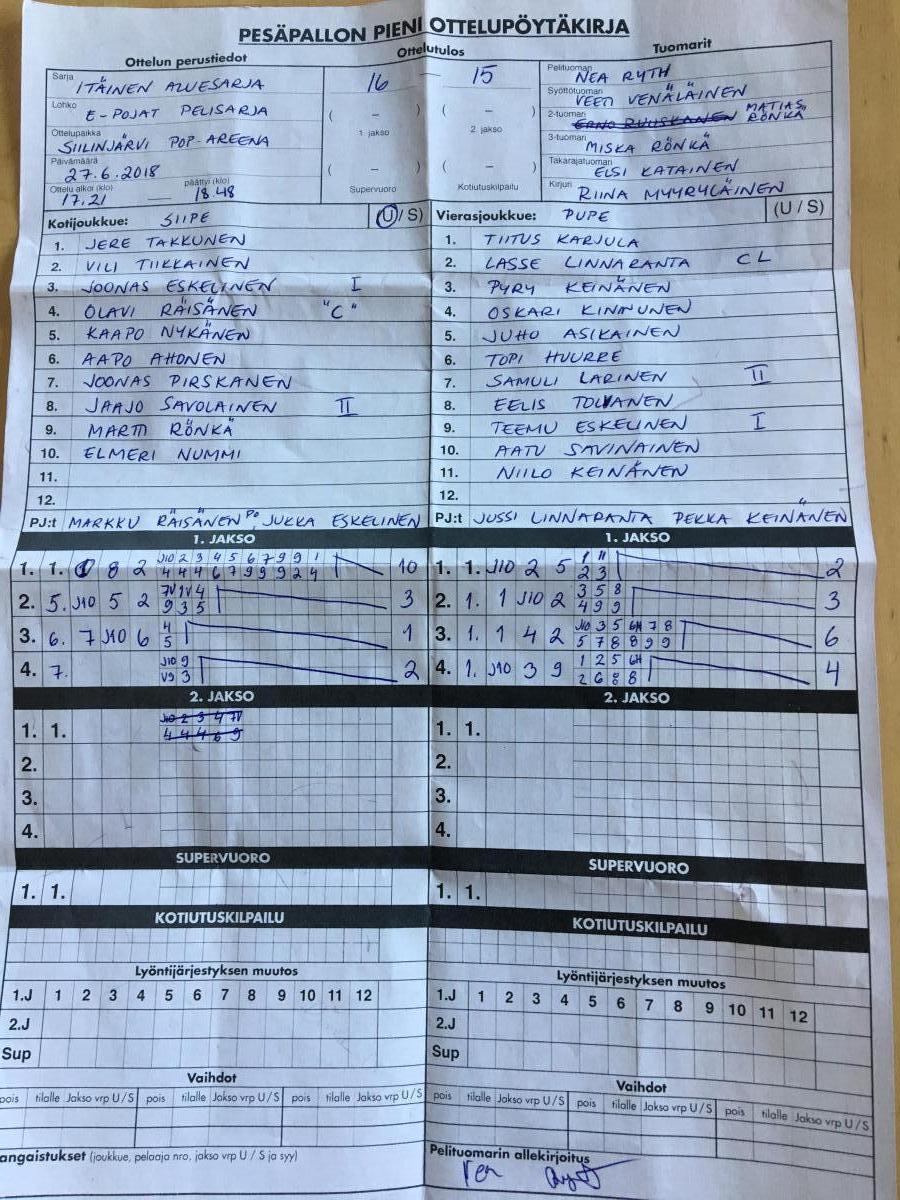 PESÄPALLON PIENI OTTELUPÖYTÄKIRJA
Ottelun perustiedot
Ottelutulos
Tuomarit
Sarja ITÄINEN ALUESARJA
16 — 15
Pelituomari NEA RYTH
Lohko E-POJAT PELISARJA
( – ) 1 jakso
( – ) 2. jakso
Syöttötuomari VEETI VENÄLÄINEN
2-tuomari ERNO RUUSKANEN MATIAS RÖNKÄ
Ottelupaikka SIILINJÄRVI POP-AREENA
3-tuomari MISKA RÖNKÄ
Päivämäärä 27.6.2018
( – ) Supervuoro
( – ) Kotiutuskilpailu
Takarajatuomari ELSI KATAINEN
Ottelu alkoi (klo) 17.21 — päättyi (klo) 18.48
Kirjuri RIINA MYYRYLÄINEN
Kotijoukkue: SIIPE (U/S)
Vierasjoukkue: PUPE (U/S)
1. JERE TAKKUNEN
2. VILI TIIKKAINEN
3. JOONAS ESKELINEN I
4. OLAVI RÄISÄNEN "C"
5. KAAPO NYKÄNEN
6. AAPO AHONEN
7. JOONAS PIRSKANEN
8. JAAJO SAVOLAINEN II
9. MARTTI RÖNKÄ
10. ELMERI NUMMI
11.
12.
PJ:t MARKKU RÄISÄNEN PO, JUKKA ESKELINEN
1. TIITUS KARJULA
2. LASSE LINNARANTA CL
3. PYRY KEINÄNEN
4. OSKARI KINNUNEN
5. JUHO ASIKAINEN
6. TOPI HUURRE
7. SAMULI LARINEN II
8. EELIS TOLVANEN
9. TEEMU ESKELINEN I
10. AATU SAVINAINEN
11. NIILO KEINÄNEN
12.
PJ:t JUSSI LINNARANTA PEKKA KEINÄNEN
1. JAKSO
J10 2 3 4 5 6 7 9 9 1
1. 1. 8 2 4 4 4 6 7 9 9 9 2 4 10
7V 1V 4
2. 5. J10 5 2 9 3 5 3
4
3. 6. 7 J10 6 5 1
J10 9
4. 7. V9 3 2
1. JAKSO
1 11
1. 1. J10 2 5 2 3 2
3 5 8
2. 1. 1 J10 2 4 9 9 3
J10 3 5 6H 7 8
3. 1. 1 4 2 5 7 8 8 9 9 6
1 2 5 6H
4. 1. J10 3 9 2 6 8 8 4
2. JAKSO
J10 2 3 4 7V
1. 1. 4 4 4 6 9
2.
3.
4.
2. JAKSO
1. 1.
2.
3.
4.
SUPERVUORO
1. 1.
SUPERVUORO
1. 1.
KOTIUTUSKILPAILU
KOTIUTUSKILPAILU
Lyöntijärjestyksen muutos
1.J 1 2 3 4 5 6 7 8 9 10 11 12
2.J
Sup
Lyöntijärjestyksen muutos
1.J 1 2 3 4 5 6 7 8 9 10 11 12
2.J
Sup
Vaihdot
pois tilalle Jakso vrp U / S pois tilalle Jakso vrp U / S pois tilalle Jakso vrp U / S
Vaihdot
pois tilalle Jakso vrp U / S pois tilalle Jakso vrp U / S pois tilalle Jakso vrp U / S
angaistukset (joukkue, pelaaja nro, jakso vrp U / S ja syy)
Pelituomarin allekirjoitus